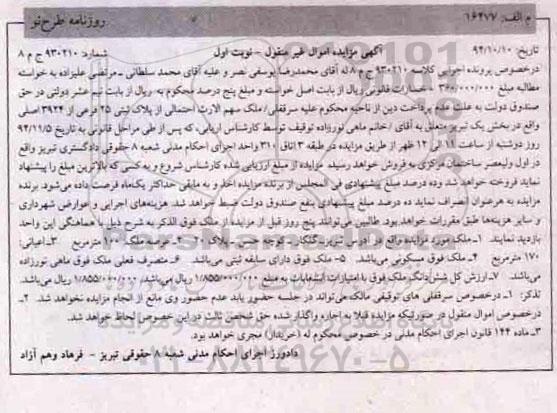 م الف: ۱۶۴۷۷
روزنامه طرح‌نو
تاریخ: ۹۴/۱۰/۱۰
آگهی مزایده اموال غیر منقول - نوبت اول
شماره: ۹۳۰۲۱۰ ج م ۸
درخصوص پرونده اجرایی کلاسه ۹۳۰۲۱۰ ج م ۸ له آقای محمدرضا یوسفی نصر و علیه آقای محمد سلطانی ـ مرتضی علیزاده به خواسته
مطالبه مبلغ ۳۶۰/۰۰۰/۰۰۰ خسارات قانونی ریال از بابت اصل خواسته و مبلغ پنج درصد محکوم به ریال از بابت نیم عشر دولتی در حق
صندوق دولت به علت عدم پرداخت دین از ناحیه محکوم علیه سرقفلی/ ملک سهم الارث احتمالی از پلاک ثبتی ۲۵ فرعی از ۳۹۲۴ اصلی
واقع در بخش یک تبریز متعلق به آقای /خانم ماهی نورزاده توقیف توسط کارشناس اریابی، که پس از طی مراحل قانونی به تاریخ ۹۴/۱۱/۵
روز دوشنبه از ساعت ۱۱ الی ۱۲ ظهر از طریق مزایده در طبقه ۳ اتاق ۳۱۰ واحد اجرای احکام مدنی شعبه ۸ حقوقی دادگستری تبریز واقع
در اول ولیعصر ساختمان مرکزی به فروش خواهد رسید. مزایده از مبلغ ارزیابی شده کارشناس شروع و به کسی که بالاترین مبلغ را پیشنهاد
نماید فروخته خواهد شد و ده درصد مبلغ پیشنهادی فی المجلس از برنده مزایده اخذ و به مابقی حداکثر یک‌ماه فرصت داده می‌شود. برنده
مزایده به هرعنوان انصراف نماید ده درصد مبلغ پیشنهادی بنفع صندوق دولت ضبط خواهد شد. هزینه‌های اجرایی و عوارض شهرداری
و سایر هزینه‌ها طبق مقررات خواهد بود. طالبین می‌توانند پنج روز قبل از مزایده از ملک فوق الذکر به شرح ذیل با هماهنگی این واحد
بازدید نمایند. ۱ـ ملک مورد مزایده واقع در آدرس تبریز ـ گلکار ـ کوچه حسن ـ پلاک ۲۰ ۲ـ عرصه ملک: ۱۰۰ مترمربع ۳ـ اعیانی:
۱۷۰ مترمربع ۴ـ ملک فوق مسکونی می‌باشد. ۵ـ ملک فوق دارای سابقه ثبتی می‌باشد. ۶ـ متصرف فعلی ملک فوق ماهی نورزاده
می‌باشد. ۷ـ ارزش کل شش‌دانگ ملک فوق با امتیازات انشعابات به مبلغ ۱/۸۵۵/۰۰۰/۰۰۰ ریال می‌باشد/ ۱/۸۵۵/۰۰۰/۰۰۰ ریال می‌باشد.
تذکر: ۱ـ درخصوص سرقفلی های توقیفی مالک می‌تواند در جلسه حضور یابد عدم حضور وی مانع از انجام مزایده نخواهد شد. ۲ـ
درخصوص اموال منقول در صورتیکه مزایده قبلا به اجاره واگذار شده حق شخص ثالث در این خصوص لحاظ خواهد شد.
۳ـ ماده ۱۴۴ قانون اجرای احکام مدنی در خصوص محکوم له (خریدار) مجری خواهد بود.
دادورز اجرای احکام مدنی شعبه ۸ حقوقی تبریز - فرهاد وهم آزاد
۰۲۱-۸۸۳۴۹۶۷۰-۵